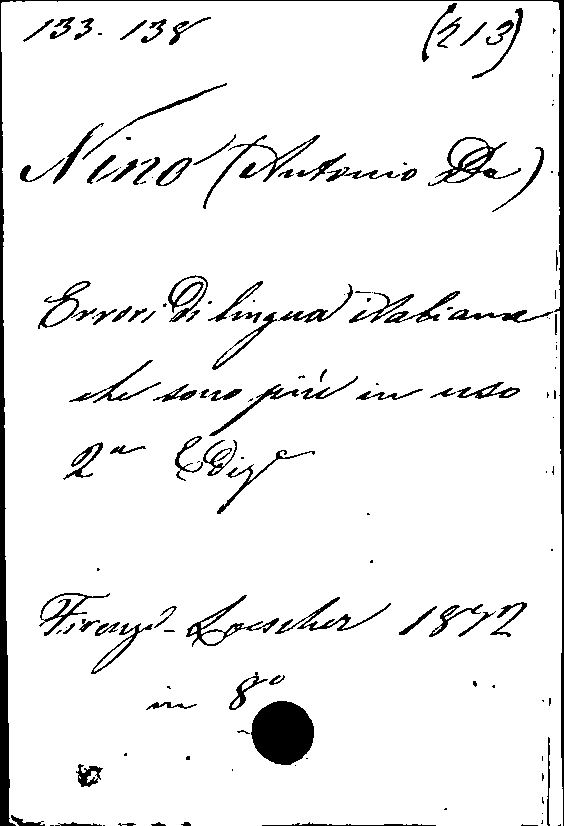 133. 138 (213)
Nino (Antonio De)
Errori di lingua italiana
che sono più in uso
2ª Edizᵉ
Firenze - Loescher 1872
in 8º